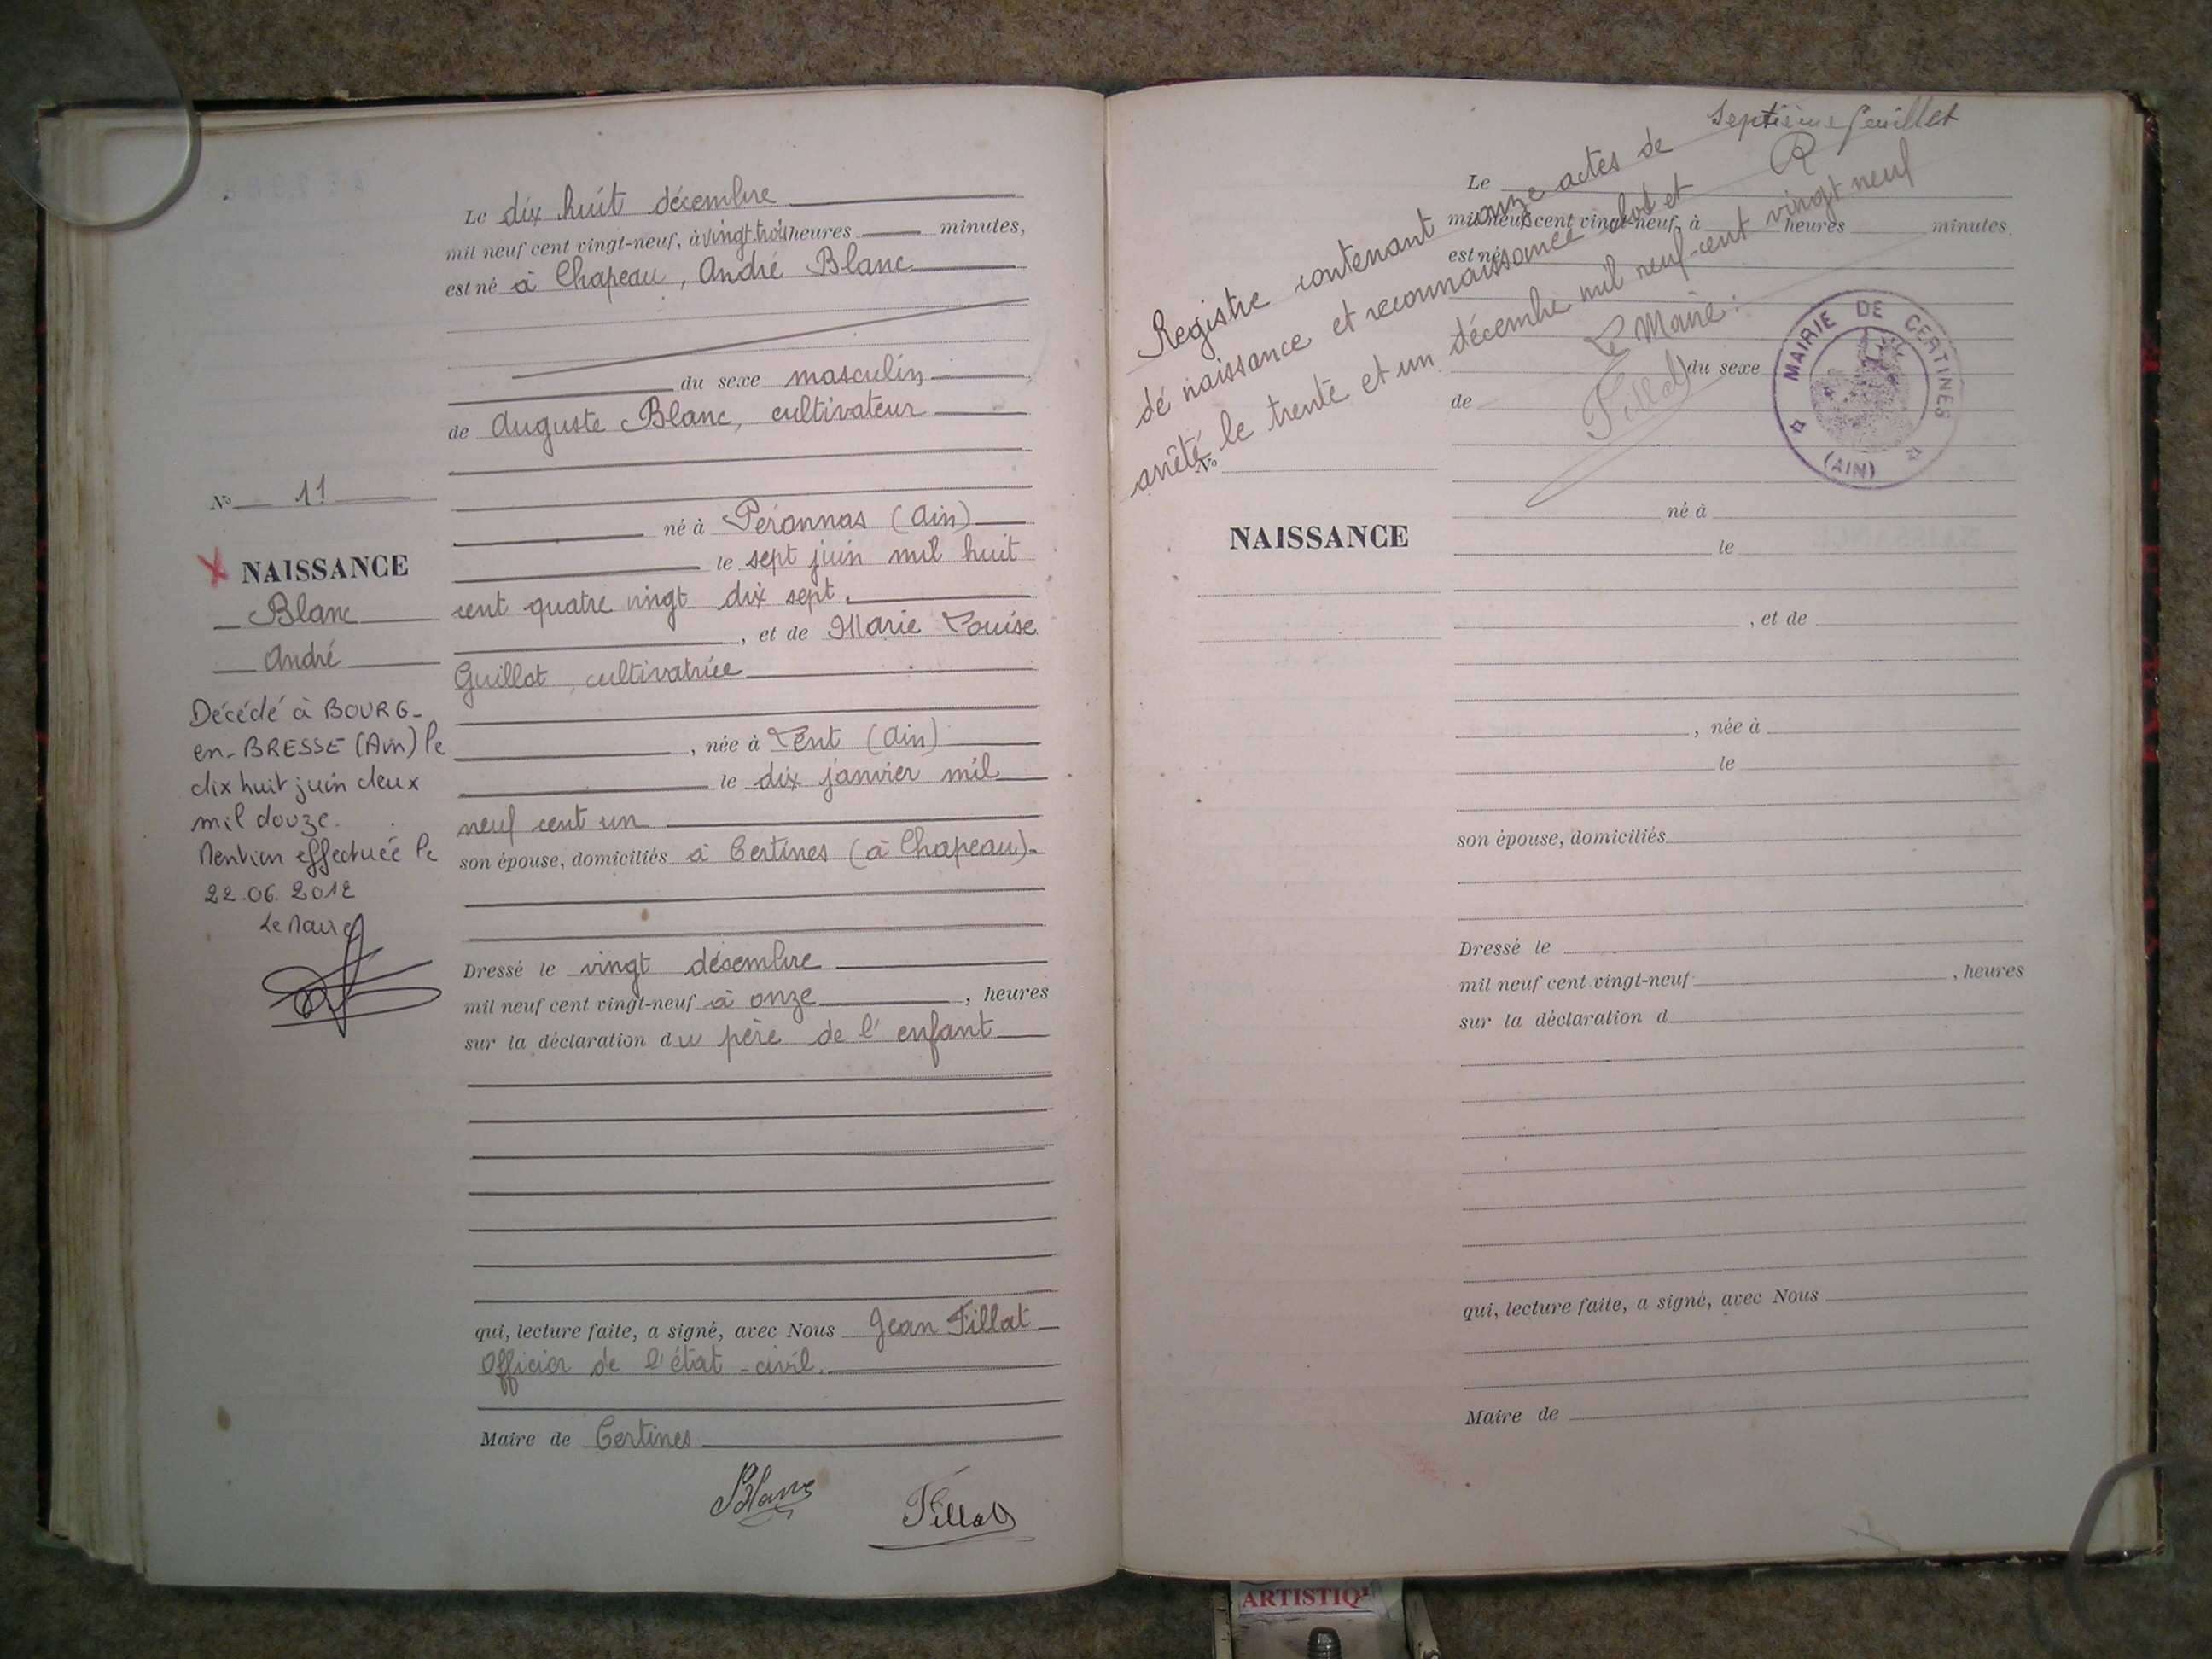 Le dix huit décembre
mil neuf cent vingt-neuf, à vingt trois heures minutes,
est né à Chapeau, André Blanc
du sexe masculin
de Auguste Blanc, cultivateur
né à Péronnas (Ain)
le sept juin mil huit
cent quatre vingt dix sept.
, et de Marie Louise
Guillot, cultivatrice
, née à Lent (Ain)
le dix janvier mil
neuf cent un
son épouse, domiciliés à Certines (à Chapeau)
Dressé le vingt décembre
mil neuf cent vingt-neuf à onze , heures
sur la déclaration du père de l'enfant
qui, lecture faite, a signé, avec Nous Jean Tillat
Officier de l'état-civil.
Maire de Certines
Blanc
Tillat
No 11
NAISSANCE
Blanc
André
Décédé à BOURG-
en-BRESSE (Ain) le
dix huit juin deux
mil douze.
Mention effectuée le
22.06.2012
Le Maire
Septième feuillet
R
Registre contenant onze actes de
de naissance et reconnaissance clot et
arrêté le trente et un décembre mil neuf-cent vingt neuf
Le Maire :
Tillat
MAIRIE DE CERTINES
(AIN)
Le
mil neuf cent vingt-neuf, à heures minutes.
est né
du sexe
de
No
NAISSANCE
né à
le
, et de
, née à
le
son épouse, domiciliés
Dressé le
mil neuf cent vingt-neuf , heures
sur la déclaration d
qui, lecture faite, a signé, avec Nous
Maire de
ARTISTIQ